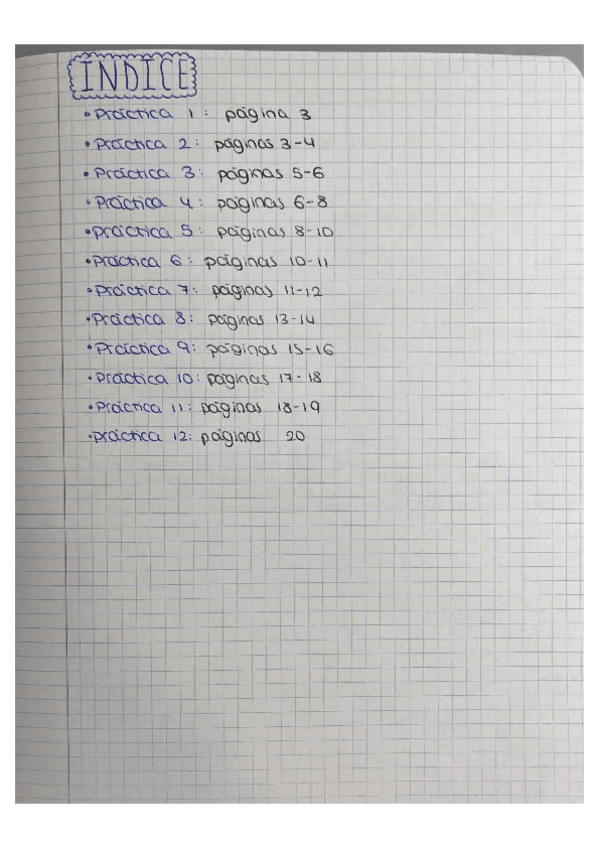 ÍNDICE
• Práctica 1: página 3
• Práctica 2: páginas 3-4
• Práctica 3: páginas 5-6
• Práctica 4: páginas 6-8
• práctica 5: páginas 8-10
• Práctica 6: páginas 10-11
• Práctica 7: páginas 11-12
• Práctica 8: páginas 13-14
• Práctica 9: páginas 15-16
• Práctica 10: páginas 17-18
• Práctica 11: páginas 18-19
• práctica 12: páginas 20